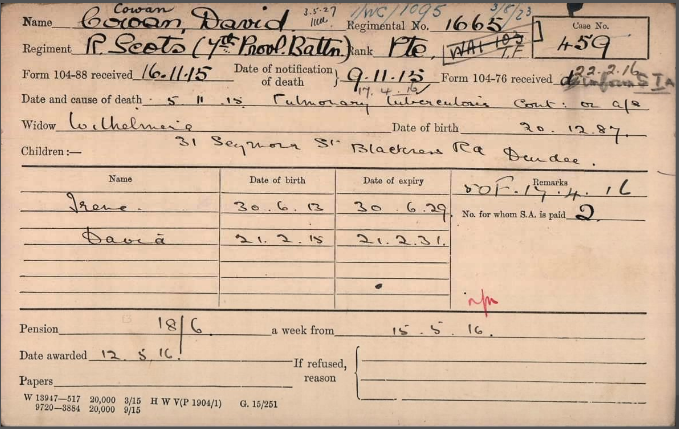 Cowan 3.5.27 IWC/1095 3/5/23
Name Cowan, David. Regimental No. 1665 Case No.
Regiment R. Scots (7th Provl. Battn.) Rank Pte. T.F. 459
Form 104-88 received 16.11.15 Date of notification of death } 9.11.15 Form 104-76 received 22.2.16
17.4.16
Date and cause of death 5 11 15 Pulmonary tuberculosis Cont: on a/s
Widow Wilhelmina Date of birth 20.12.87.
Children:— 31 Seymour St Blackness Rd Dundee.
Name Date of birth Date of expiry Remarks
SOF. 17.4.16
Irene. 30.6.13 30.6.29. No. for whom S.A. is paid 2
David 21.2.15 21.2.31.
Pension 18/6 a week from 15.5.16.
Date awarded 12.5.16. If refused, reason {
Papers
W 13947—517 20,000 3/15 H W V(P 1904/1) G. 15/251
9720—3884 20,000 9/15